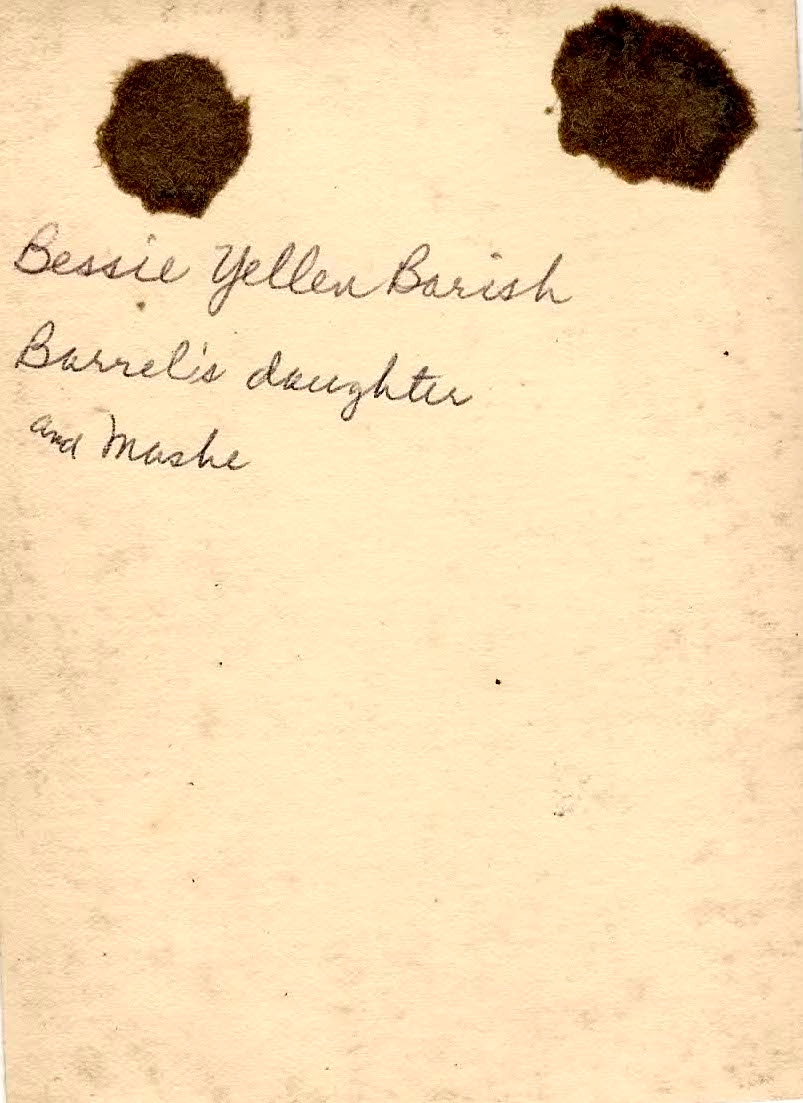 Bessie Yellen Barish
Barrel's daughter
and Mashe